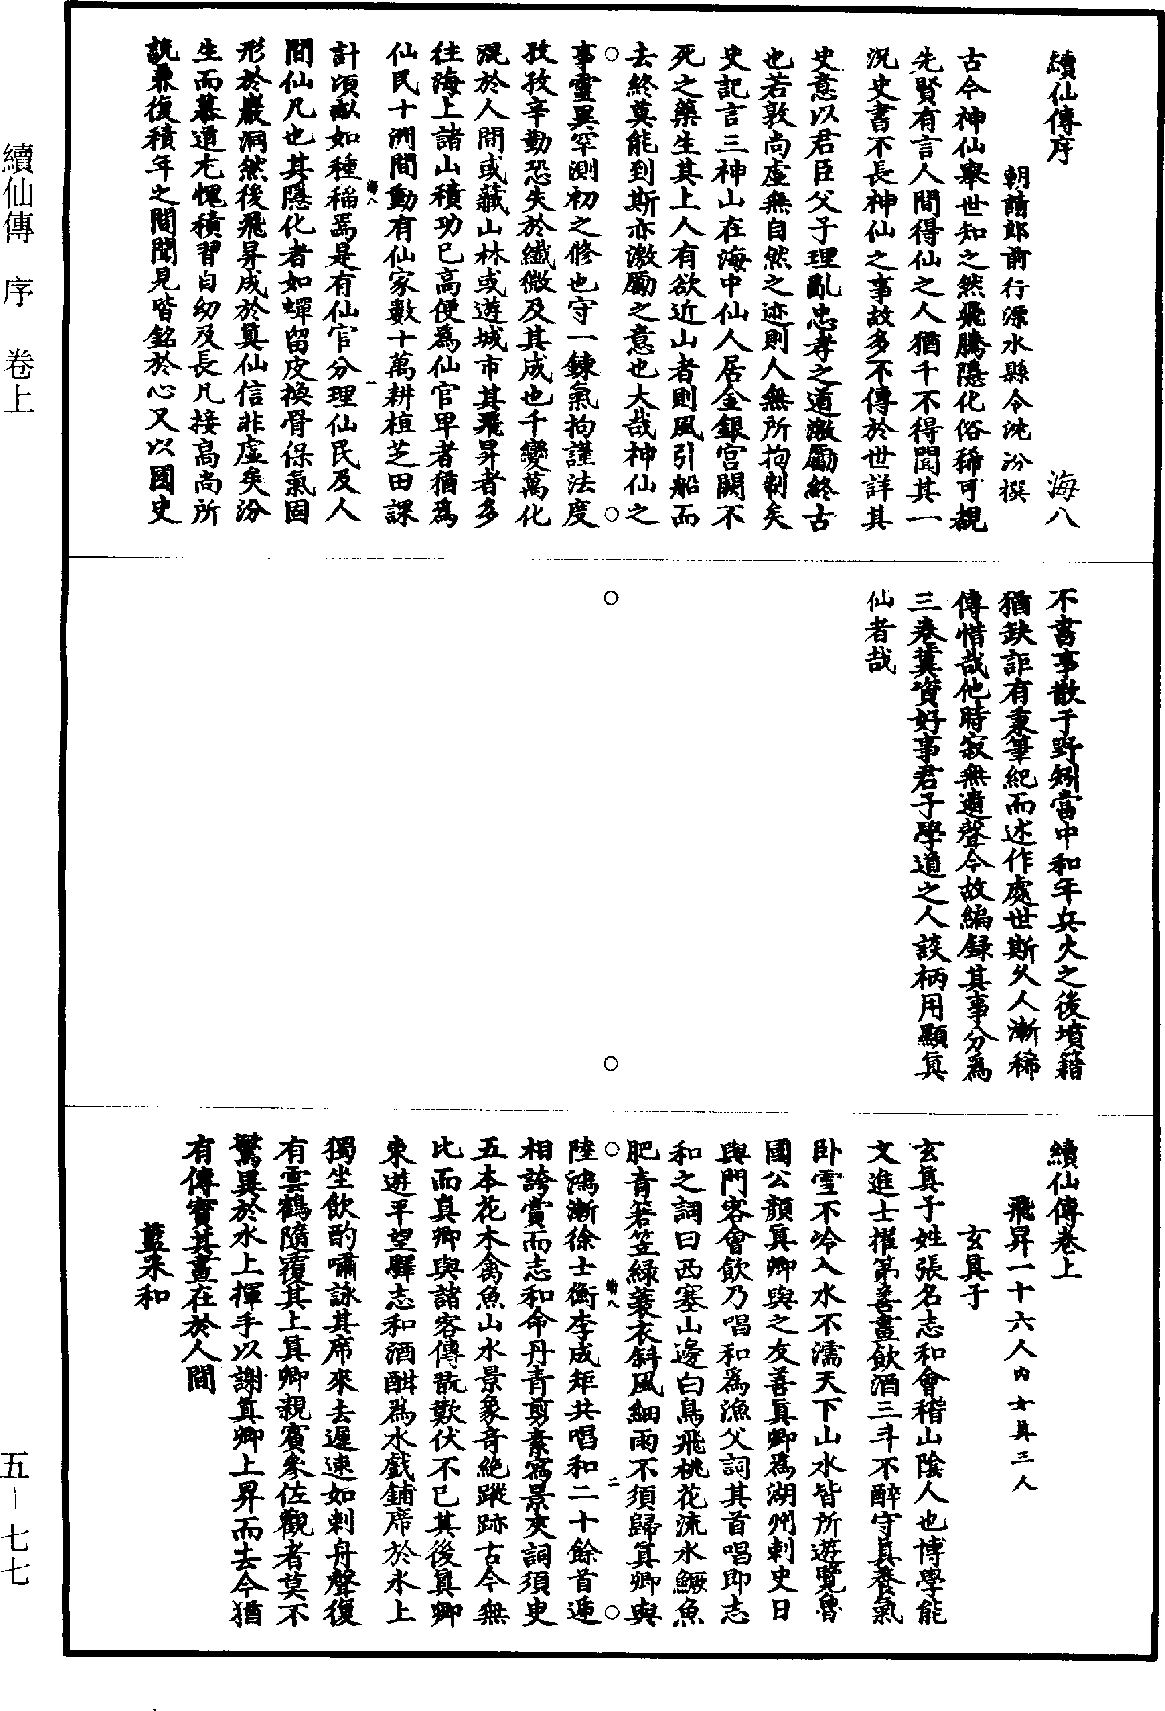 續仙傳序 海八
朝請郎前行溧水縣令沈汾撰
古今神仙舉世知之然飛騰隱化俗稀可覩
先賢有言人間得仙之人猶千不得聞其一
況史書不長神仙之事故多不傳於世詳其
史意以君臣父子理亂忠孝之道激勵終古
也若敦尚虛無自然之迹則人無所拘制矣
史記言三神山在海中仙人居金銀宮闕不
死之藥生其上人有欲近山者則風引船而
去終莫能到斯亦激勵之意也大哉神仙之
事靈異罕測初之修也守一鍊氣拘謹法度
孜孜辛勤恐失於纖微及其成也千變萬化
混於人間或藏山林或遊城市其飛昇者多
往海上諸山積功已高便為仙官卑者猶為
仙民十洲間動有仙家數十萬耕植芝田課
海八 一
計頃畝如種稻焉是有仙官分理仙民及人
間仙凡也其隱化者如蟬留皮換骨保氣固
形於巖洞然後飛昇成於真仙信非虛矣汾
生而慕道尤愧積習自幼及長凡接高尚所
說兼復積年之間聞見皆銘於心又以國史
不書事散于野矧當中和年兵火之後墳籍
猶缺詎有秉筆紀而述作處世斯久人漸稀
傳惜哉他時寂無遺聲今故編錄其事分為
三卷冀資好事君子學道之人談柄用顯真
仙者哉
續仙傳卷上
飛昇一十六人內女真三人
玄真子
玄真子姓張名志和會稽山陰人也博學能
文進士擢第善畫飲酒三斗不醉守真養氣
卧雪不冷入水不濡天下山水皆所遊覽魯
國公顏真卿與之友善真卿為湖州刺史日
與門客會飲乃唱和為漁父詞其首唱即志
和之詞曰西塞山邊白鳥飛桃花流水鱖魚
肥青箬笠綠蓑衣斜風細雨不須歸真卿與
海八 二
陸鴻漸徐士衡李成矩共唱和二十餘首遞
相誇賞而志和命丹青剪素寫景夾詞須臾
五本花木禽魚山水景象奇絕蹤跡古今無
比而真卿與諸客傳翫歎伏不已其後真卿
東遊平望驛志和酒酣為水戲鋪席於水上
獨坐飲酌嘯詠其席來去遲速如刺舟聲復
有雲鶴隨覆其上真卿親賓參佐觀者莫不
驚異於水上揮手以謝真卿上昇而去今猶
有傳寶其畫在於人間
藍采和
續仙傳 序 卷上
五-七七